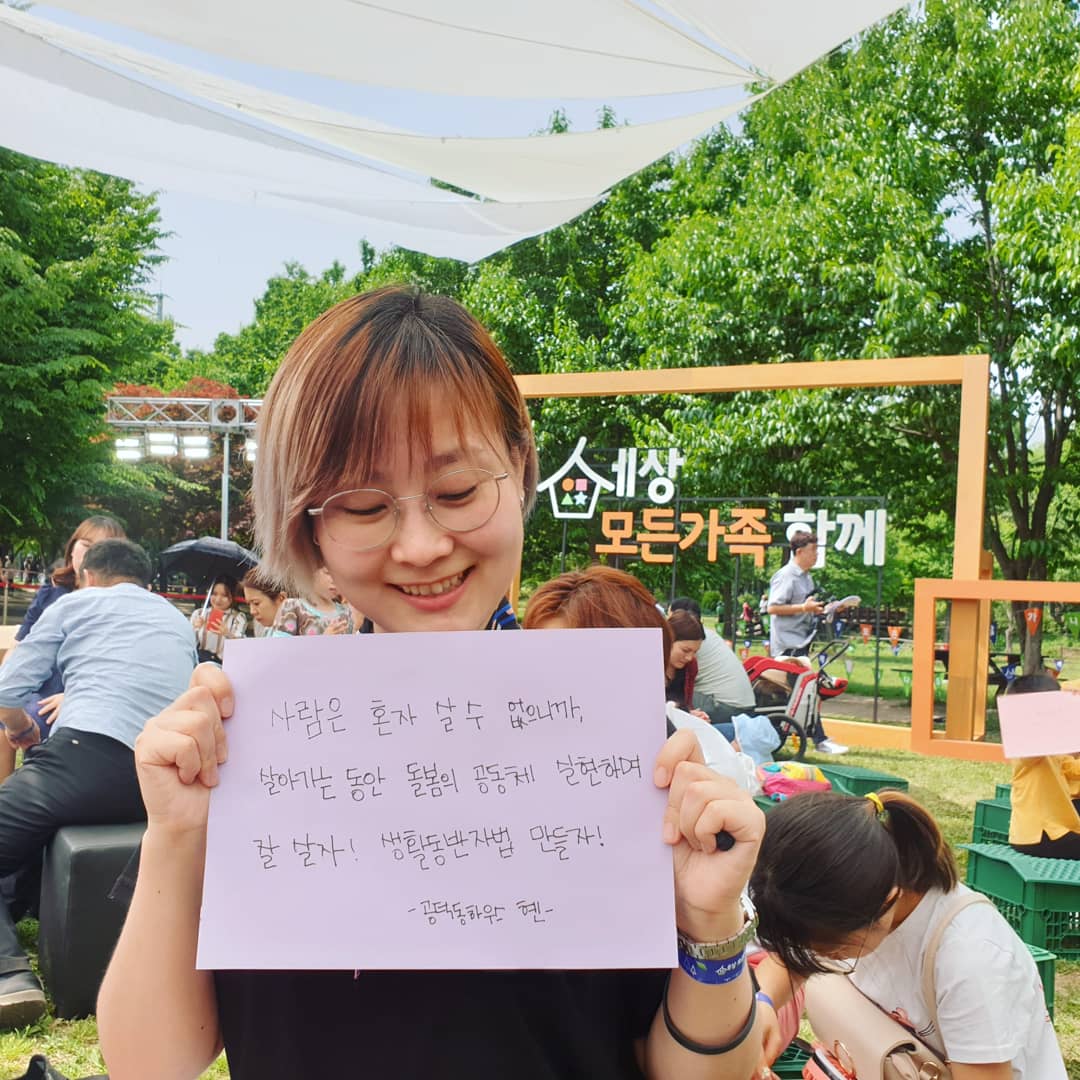 세상
모든가족 함께
사람은 혼자 살 수 없으니까,
살아가는 동안 돌봄의 공동체 실현하며
잘 살자! 생활동반자법 만들자!
-공덕동하우스 현-